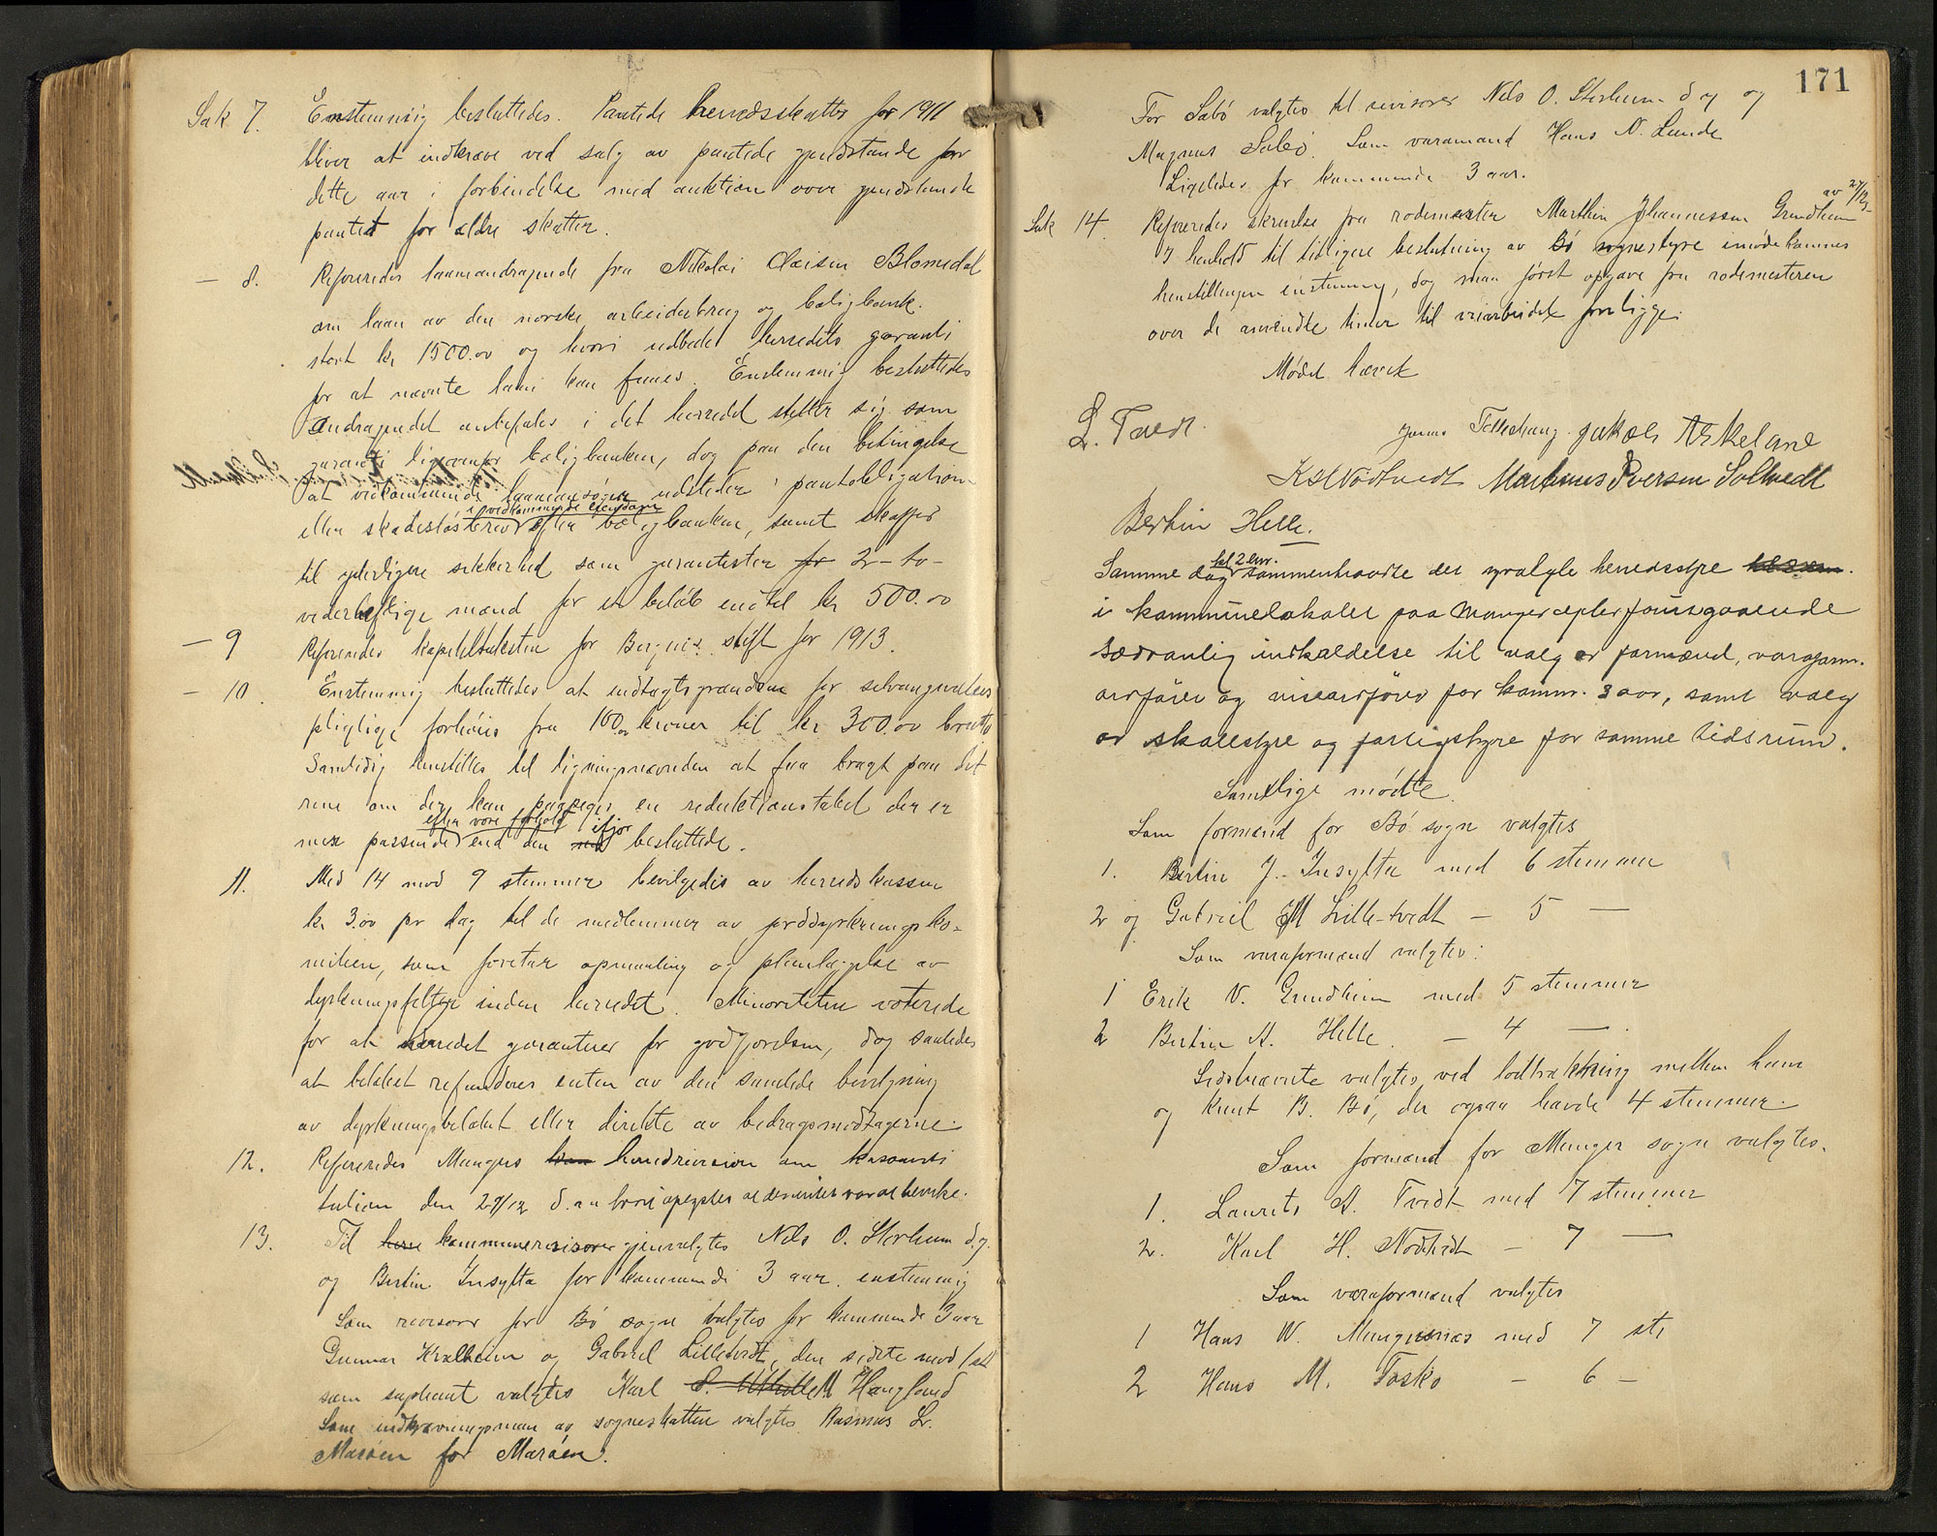 Sak 7. Enstemmig besluttedes. Pantede herredsskatter for 1911
bliver at indkræve ved salg av pantede gjendstande for
dette aar i forbindelse med auktion over gjendstande
pantet for ældre skatter.
— 8. Refereredes laaneandragende fra Nikolai Claisen Blomedal
om laan av den norske arbeiderbrug og boligbank.
stort kr 1500.00 og hvori udbedes herredets garanti
for at nævnte laan kan faaes. Enstemmig besluttedes
Andragendet anbefales i det herredet stiller sig som
garanti ligeoverfor boligbanken, dog paa den betingelse
at vedkommende laaneansøger udsteder pantobligation
i vedkommende eiendom
eller skadesløsbrev efter boligbanken, samt skaffer
til yderligere sikkerhed som garantister for 2 - to -
vederheftige mænd for et beløb indtil kr 500.00
— 9 Refereredes kapitelstaksten for Bergens stift for 1913.
— 10. Enstemmig besluttedes at indtægtsgrændsen for selvangivelses
pligtige forhøies fra 100.00 kroner til kr 300.00 brutto
Samtidig henstilles til ligningsnævnden at faa bragt paa det
rene om der kan paapeges en reduktionstabel der er
efter vore forhold ifjor
mer passende end den besluttede.
11. Med 14 mod 9 stemmer bevilgedes av herredskassen
kr 3.00 pr dag til de medlemmer av jorddyrkningsko-
miteen, som foretar opmaaling og planlæggelse av
dyrkningsfelter inden herredet. Minoriteten voterede
for at herredet garanterer for godtgjørelsen, dog saaledes
at beløbet refunderes enten av den samlede bevilgning
av dyrkningsbeløbet eller direkte av bidragsmodtagerne.
12. Refereredes Mangers herredrevision om kasseinkvi
sition den 27/12 d. aa hvori opgystes at desuiten var at bevirke.
13. Til herr kommunerevisorer gjenvalgtes Nils O. Storheim d.y.
og Bertin Insylta for kommende 3 aar. enstemmig
Som revisorer for Bø sogn valgtes for kommende 3 aar
Gunnar Kvalheim og Gabriel Lilletvedt, den sidste med (st)
som suppleant valgtes Karl Haugland
Som indkrævningsman av sogneskatten valgtes Rasmus Lr.
Marøen for Marøen.
171
For Sæbø valgtes til revisorer Nils O. Storheim d.y. og
Magnus Sæbø. Som varamand Hans N. Lunde
Ligeledes for kommende 3 aar.
av 27/12
Sak 14. Refereredes skrivelse fra rodemester Marthin Johannessen Grindheim
I henhold til tidligere beslutning av Bø sognestyre imødekommes
henstillingen enstemmig, dog maa først opgave fra rodemesteren
over de anvendte timer til veiarbeidet foreligge.
Mødet hævet
L. Tvedt. Jakob Askeland
K H Nödtvedt Martinus Iversen Soltvedt
Bertin Helle.
kl 2 em.
Samme dag sammentraadte det nyvalgte herredsstyre
i kommunelokalet paa Manger efter foutsgaaende
sædvanlig indkaldelse til valg av formænd, varaform.
ordfører og viseordfører for komm. 3 aar, samt valg
av skolestyre og fattigstyre for samme tidsrum.
Samtlige mødte.
Som formænd for Bø sogn valgtes
1. Bertin J. Insylta med 6 stemmer
2 og Gabriel M Lille-tvedt — 5 —
Som varaformænd valgtes:
1 Erik N. Grindheim med 5 stemmer
2 Bertin A. Helle. — 4 —
Sidstnævnte valgtes ved lodtrækning mellem ham
og Knut B. Bø, der ogsaa havde 4 stemmer.
Som formænd for Manger sogn valgtes.
1. Laurits A. Tvedt med 7 stemmer
2. Karl H. Nödtvedt — 7 —
Som varaformænd valgtes
1 Hans W. Mangersnes med 7 st.
2 Hans M. Toska — 6 —